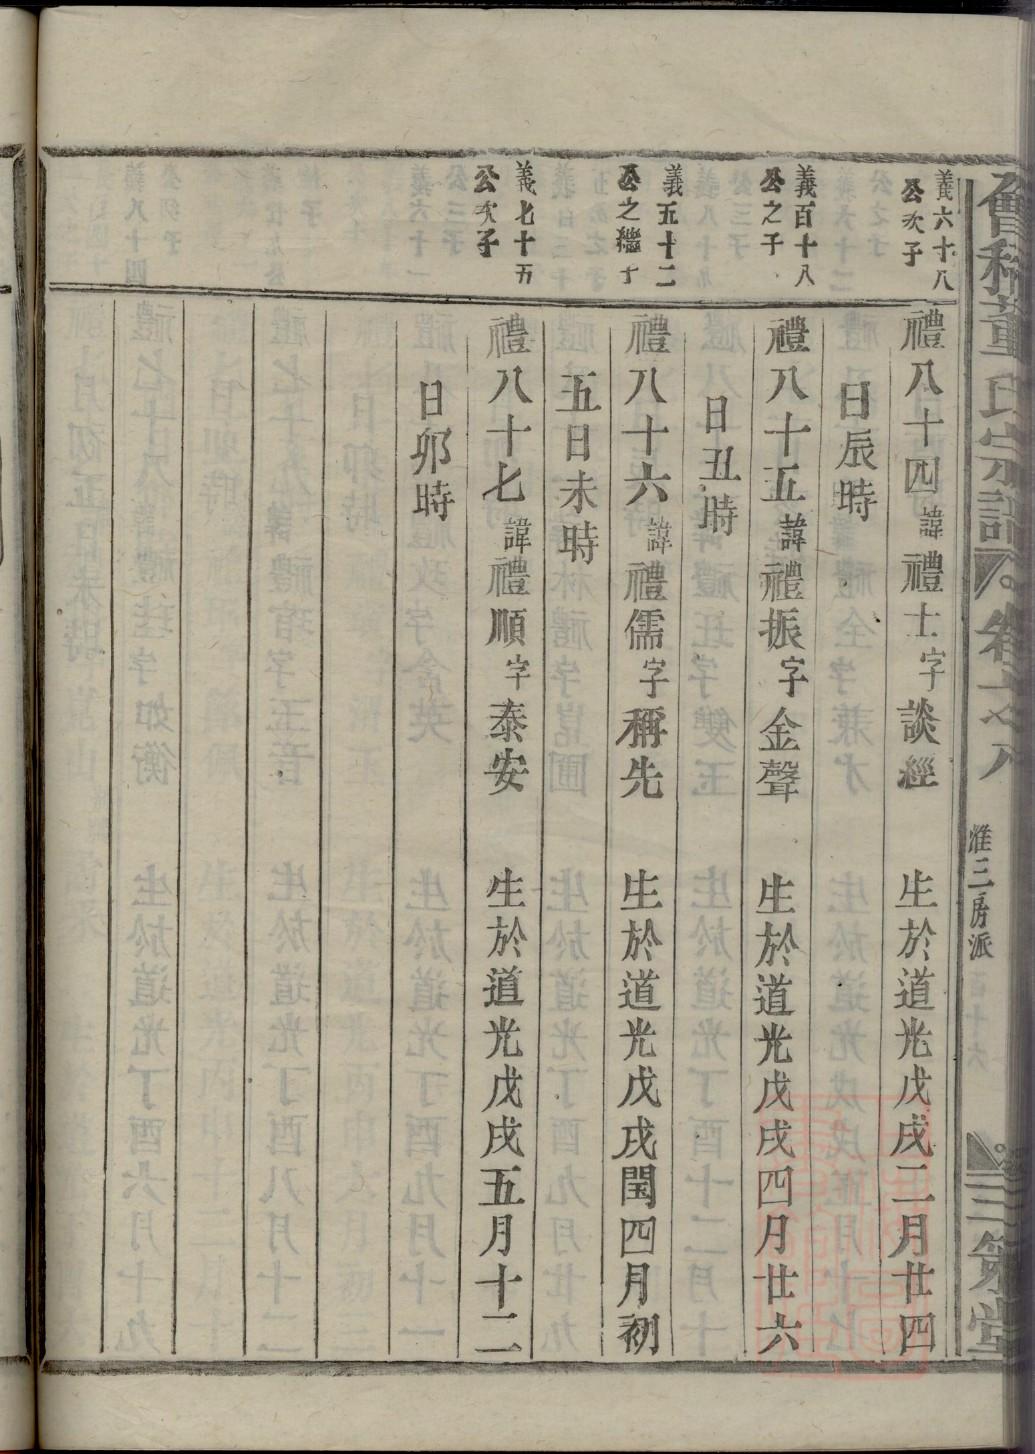 會稽董氏宗譜
卷之八
惟三房派
三策堂
義六十八
公次子
禮八十四諱禮士字談經 生於道光戊戌二月廿四
日辰時
義百十八
公之子
禮八十五諱禮振字金聲 生於道光戊戌四月廿六
日丑時
義五十二
公之繼子
禮八十六諱禮儒字稱先 生於道光戊戌閏四月初
五日未時
義七十五
公次子
禮八十七諱禮順字泰安 生於道光戊戌五月十二
日卯時